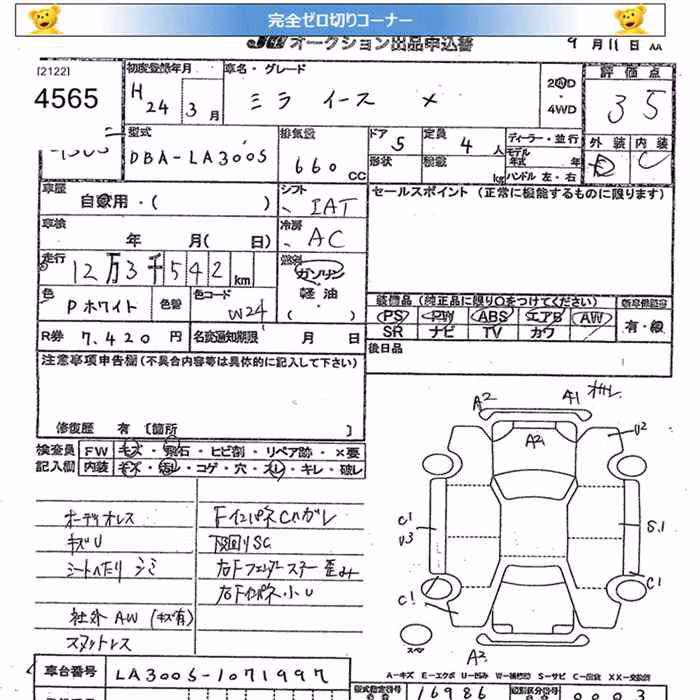 完全ゼロ切りコーナー
JU オークション出品申込書 9 月 11 日 AA
[2122]
4565
初度登録年月 H 24 3 月
車名・グレード
ミラ イース X
2WD ・ 4WD
評価点
3.5
型式
DBA-LA300S
排気量
660 CC
ドア 5
形状
定員 4 人
積載 kg
ディーラー・並行
モデル年式 年
ハンドル 左・右
外装 内装
E C
車歴
自家用・( )
シフト
IAT
セールスポイント (正常に機能するものに限ります)
車検
年 月( 日)
冷房
AC
走行
12万3千542 km
燃料
ガソリン・軽油
( )
色
Pホワイト
色替
色コード
W24
装備品 (純正品に限り○をつけてください)
PS PW ABS エアB AW
SR ナビ TV カワ
有・無
R券 7,420 円
名変通知期限 月 日
後日品
注意事項申告欄 (不具合内容等は具体的に記入して下さい)
修復歴 有 〔箇所 〕
検査員 記入欄
FW キズ・飛石・ヒビ割・リペア跡・×要
内装 キズ・汚レ・コゲ・穴・スレ・キレ・破レ
オーディオレス
キズU
シートヘたり シミ
社外AW (キズ有)
スタッドレス
FインパネCハガレ
下回りSC
右Fフェンダーステー歪み
右Fインパネ小U
A2 A1 オサレ
A2
U2
C1
U3
S1
C1
C1
スペア
A2
A-キズ E-エクボ U-凹み W-補修跡 S-サビ C-腐食 XX-交換済
車台番号 LA300S-1071997
型式指定番号 16986
類別区分番号 0003